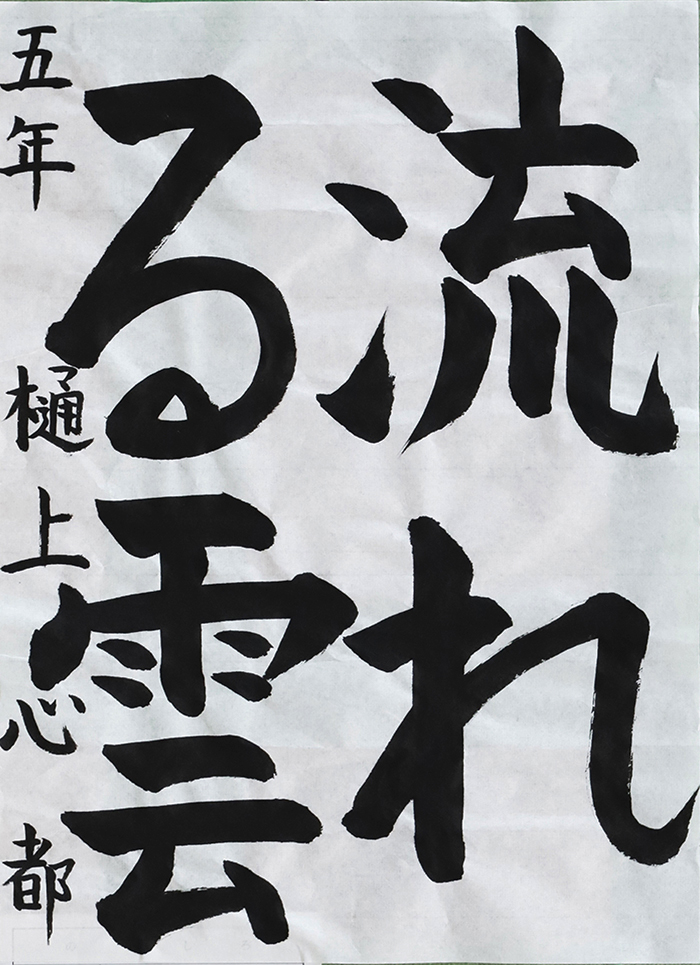 流れ
る雲
五年 樋上心都